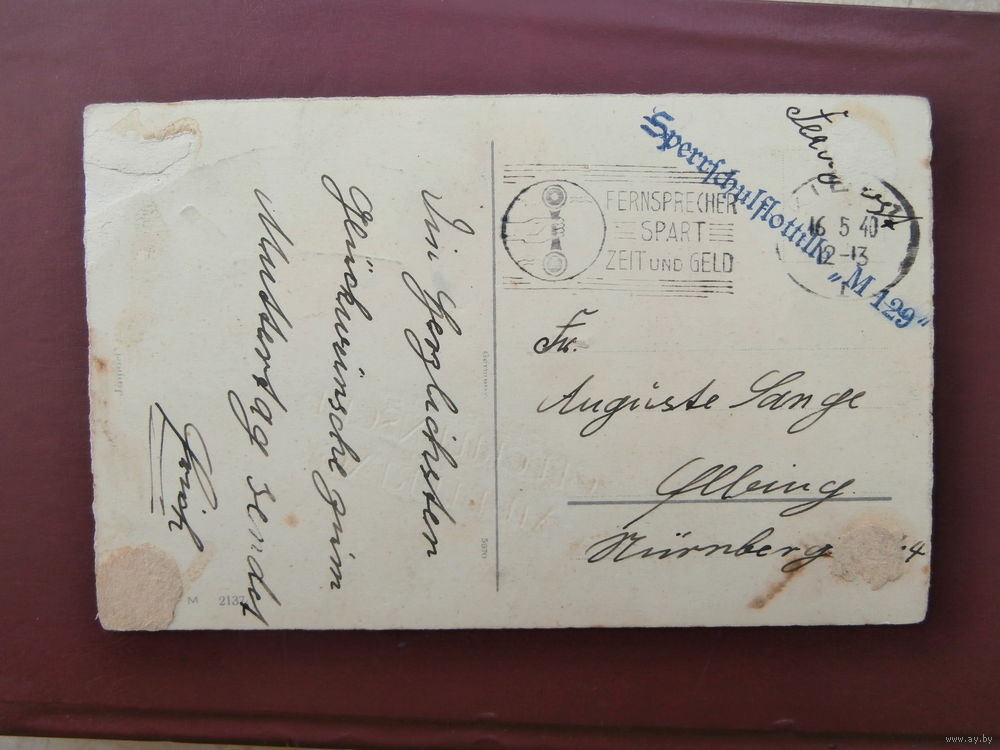 Die herzlichsten
Glückwünsche zum
Muttertag sendet
Erich
Sperrschulflottille „M 129“
FERNSPRECHER
SPART
ZEIT UND GELD
16 5 40
12-13
Fr.
Auguste Lange
Elbing
Nürnberg 4
Germany
5070
M 2137
www.ay.by